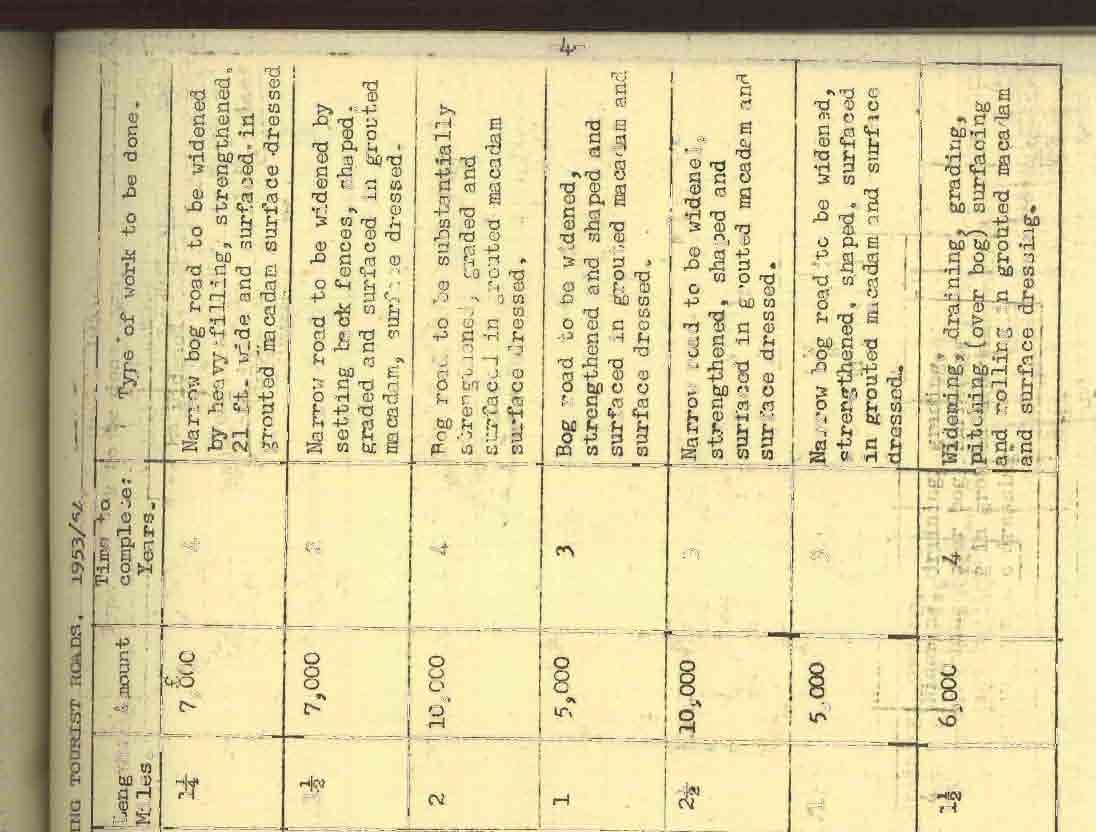 4
ING TOURIST ROADS. 1953/54
Length Miles. Amount Time to complete: Years. Type of work to be done.
1¼ £ 7,000 4 Narrow bog road to be widened
by heavy filling, strengthened,
21 ft. wide and surfaced in
grouted macadam surface dressed
½ 7,000 Narrow road to be widened by
setting back fences, shaped.
graded and surfaced in grouted
macadam, surface dressed.
2 10,000 4 Bog road to be substantially
strengthened, graded and
surfaced in grouted macadam
surface dressed.
1 5,000 3 Bog road to be widened,
strengthened and shaped and
surfaced in grouted macadam and
surface dressed.
2½ 10,000 Narrow road to be widened,
strengthened, shaped and
surfaced in grouted macadam and
surface dressed.
1 5,000 Narrow bog road to be widened,
strengthened, shaped, surfaced
in grouted macadam and surface
dressed.
1½ 6,000 4 Widening, draining, grading,
pitching (over bog) surfacing
and rolling in grouted macadam
and surface dressing.